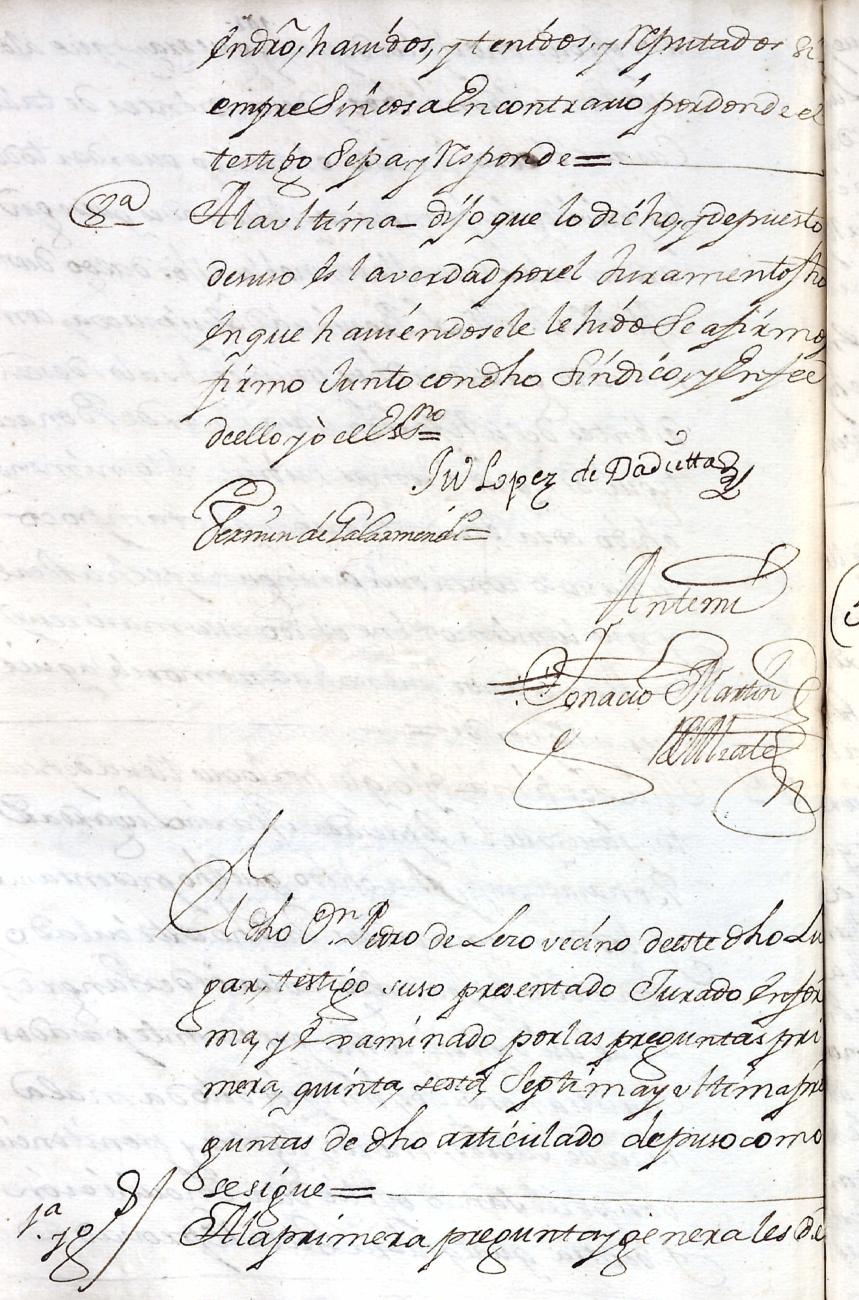 Endro, havidos, y tenidos, y Reputados si
empre sin cosa En contrario por donde el
testigo Sepa, y Responde =
8ª Ala ultima dijo que lo dicho, y depuesto
de suso es la verdad por el Juramento fho
En que haviendosele lehido se afirmo, y
firmo Junto con dho Sindico, y En fee
de ello yò el Essno =
Lopez de Dadutta
Fermin de
Ante mi
Ignacio Martin
de Alzate
El dho Dn Pedro de Lezo vecino de este dho Lu
gar, testigo suso presentado Jurado En for
ma, y Exsaminado por las preguntas pri
mera, quinta, sesta, Septima y ultima pre
guntas de dho articulado depuso como
se sigue =
1ª Ala primera pregunta y generales de